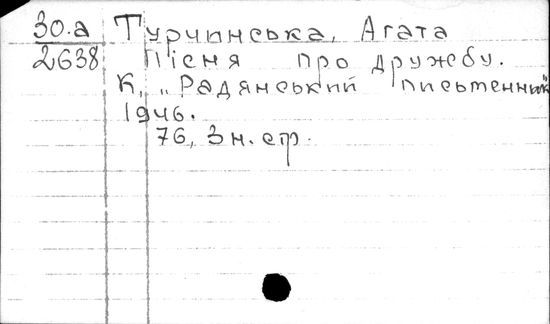 30.а Турчинська, Агата
2638 Пісня про дружбу.
К, „Радянський письменник"
1946.
76, 3 н. стр.